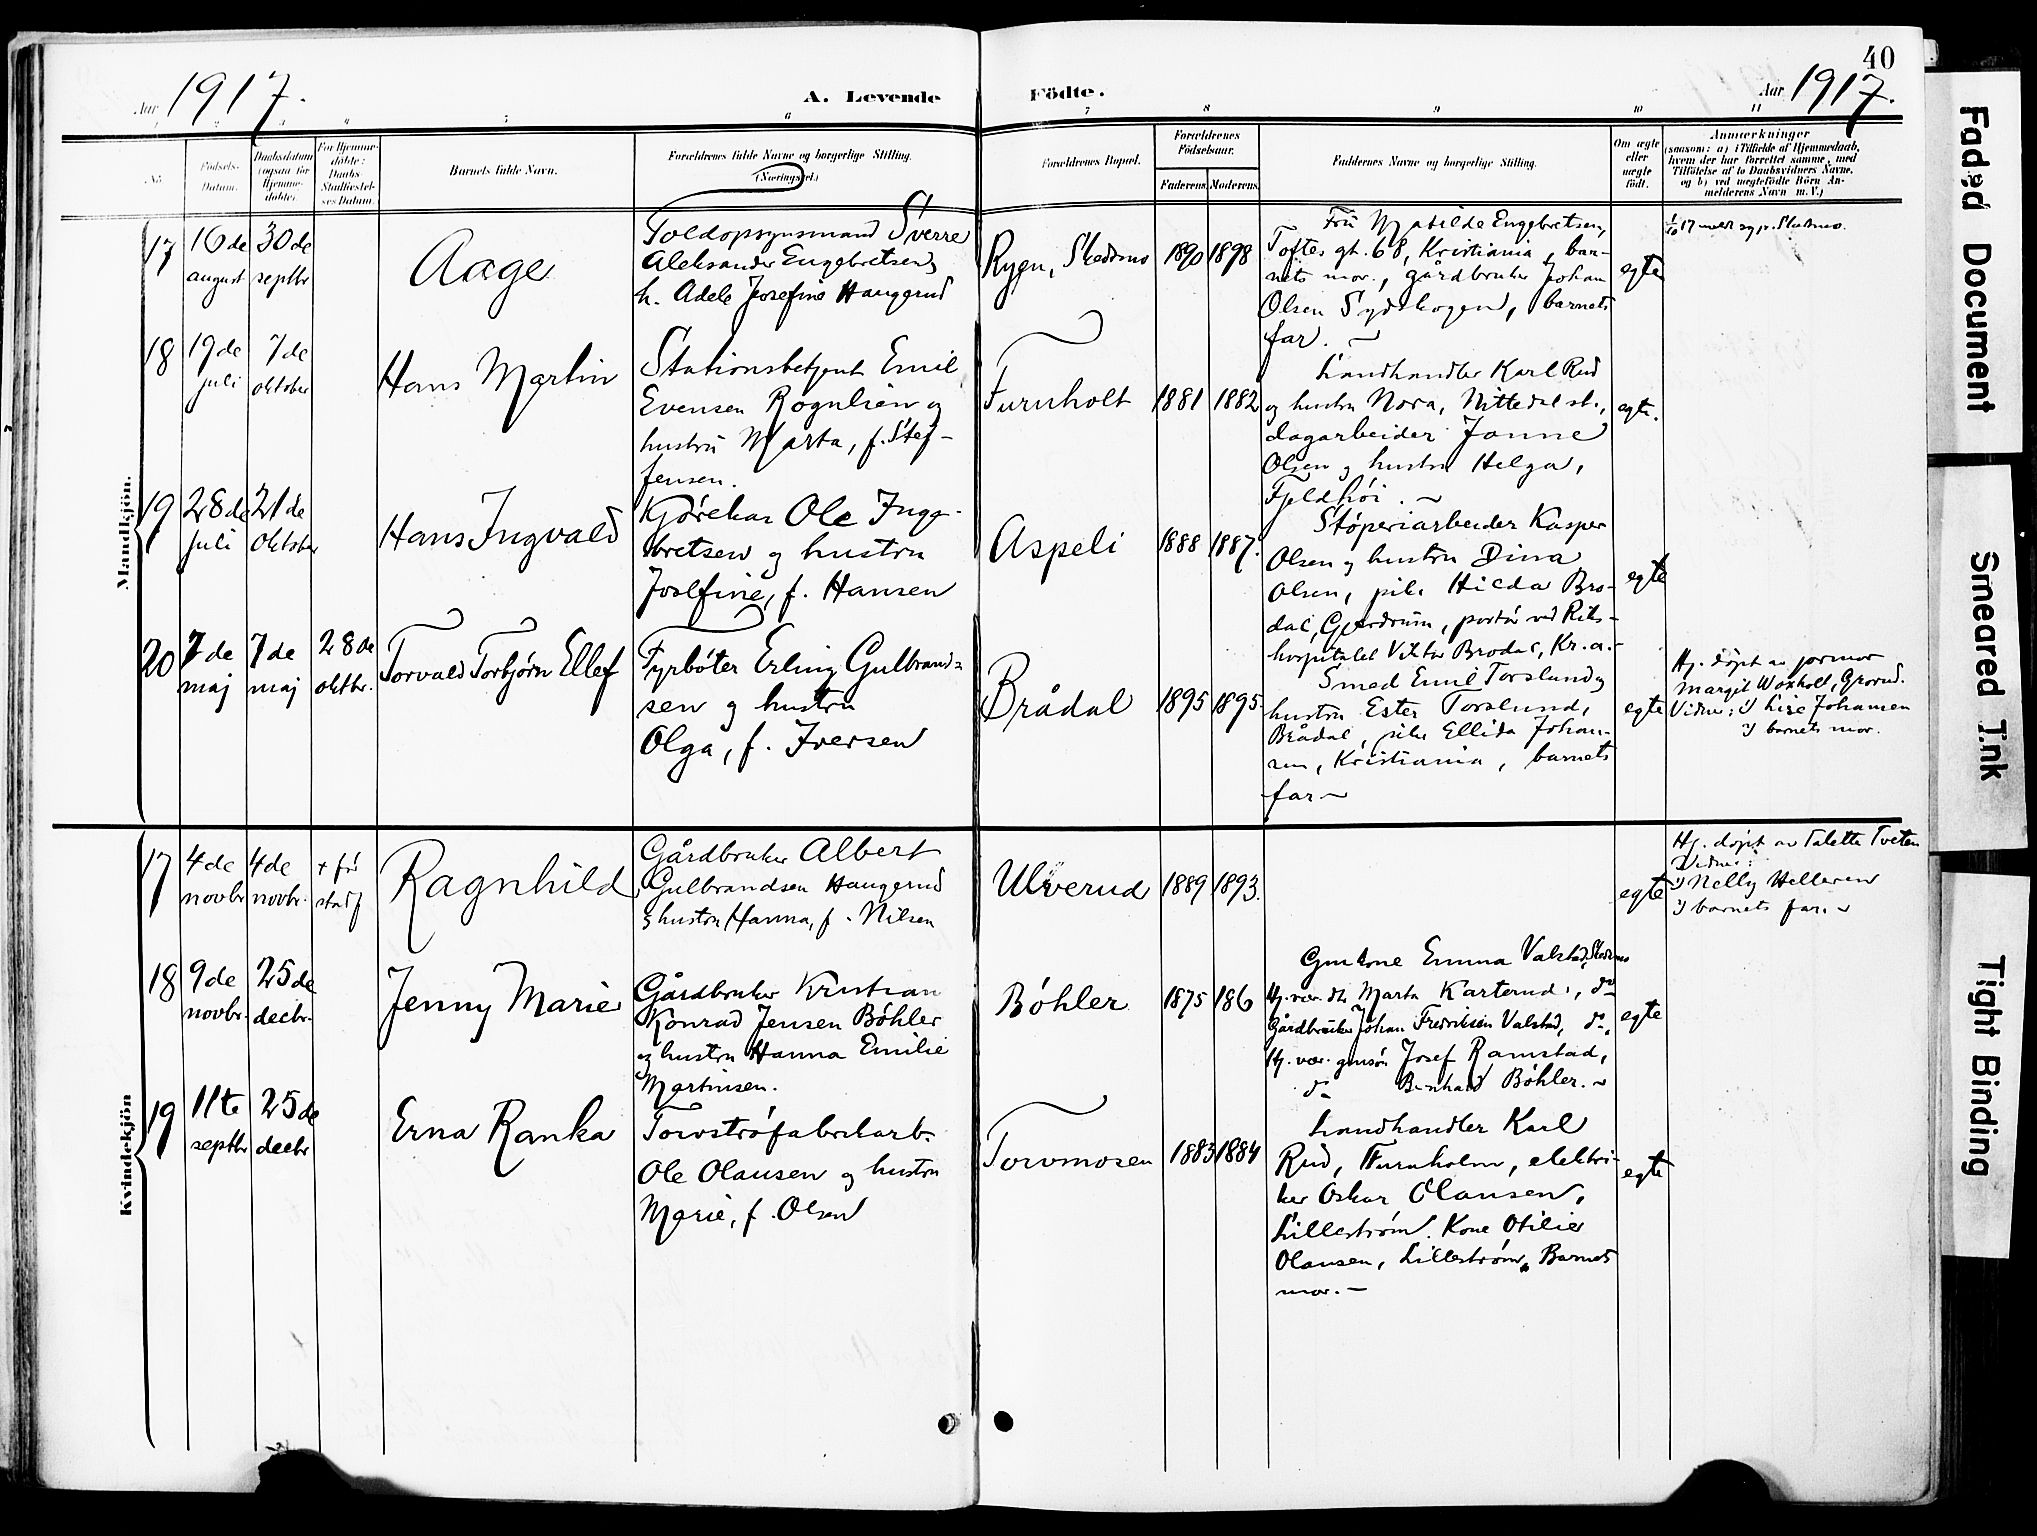 40
Aar 1917.
A. Levende Födte.
Aar 1917.
1 2 3 4 5 6 7 8 9 10 11
No.
Födsels-
Datum.
Daabsdatum
(ogsaa for
Hjemme-
döbte).
For Hjemme-
döbte:
Daabs-
Stadfæstel-
ses Datum.
Barnets fulde Navn.
Forældrenes fulde Navne og borgerlige Stilling.
(Næringsvei.)
Forældrenes Bopæl.
Forældrenes
Födselsaar.
Faderens. Moderens.
Faddernes Navne og borgerlige Stilling.
Om ægte
eller
uægte
födt.
Anmærkninger
(saasom: a) i Tilfælde af Hjemmedaab,
hvem der har forrettet samme, med
Tilföielse af to Daabsvidners Navne,
og b) ved uægtefödte Börn An-
melderens Navn m. V.)
Mandkjön.
17
16de
august
30de
septbr
Aage
Toldopsynsmand Sverre
Aleksander Engebretsen
h. Adele Josefine Haugerud
Rygn, Skedsmo
1890
1898
Fru Matilde Engebretsen,
Toftes gt. 68, Kristiania, bar-
nets mor, gårdbruker Johan
Olsen Sydskogen, barnets
far.
egte
18
19de
juli
7de
oktober
Hans Martin
Stationsbetjent Emil
Evensen Rognlien og
hustru Marta, f. Stef-
fensen.
Furuholt
1881
1882
Landhandler Karl Rud
og hustru Nora, Nittedal st.,
dagarbeider Jonne
Olsen og hustru Helga,
Fjeldhöi.
egte.
19
28de
juli
21de
oktober
Hans Ingvald
Kjørekar Ole Inge-
bretsen og hustru
Josefine, f. Hansen
Aspeli
1888
1887.
Støperiarbeider Kasper
Olsen og hustru Dina
Olsen, pike Hilda Bro-
dal, Gjerdrum, portör ved Riks-
hospitalet Viktor Brodal, Kr.a.
egte
20
7de
maj
7de
maj
28de
oktbr.
Torvald Torbjørn Ellef
Fyrbøter Erling Gulbrand-
sen og hustru
Olga, f. Iversen
Brådal
1895
1895.
Smed Emil Torslund og
hustru Ester Torslund,
Brådal, pike Ellida Johan-
sen, Kristiania, barnets
far
egte
Hj. døpt av jormor
Margit Woxholt, Grorud.
Vidner: 1) Lise Johansen
2) barnets mor.
Kvindekjön
17
4de
novbr
4de
novbr.
+ før
stadf
Ragnhild
Gårdbruker Albert
Gulbrandsen Haugerud
og hustru Hanna, f. Nilsen
Ulverud
1889
1893.
egte
Hj. døpt av Talette Tveten
Vidner:
1) Nelly Helleren
2) barnets far.
18
9de
novbr.
25de
decbr.
Jenny Marie
Gårdbruker Kristian
Konrad Jensen Bøhler
og hustru Hanna Emilie
Martinsen.
Bøhler
1875
186
Gmkone Emma Valstad, Skedsmo
Hj. vær. dtr Marta Karterud, do
Gårdbruker Johan Fredriksen Valstad, do,
Hj. vær. gmsøn Josef Ramstad,
do Bernhard Bøhler.
egte
19
11te
septbr
25de
decbr
Erna Ranka
Torvstrøfabrikarb.
Ole Olausen og hustru
Marie, f. Olsen
Torvmosen
1883
1884
Landhandler Karl
Rud, Furuholm, elektri-
ker Oskar Olausen,
Lillestrøm. Kone Otilie
Olausen, Lillestrøm, Barnets
mor.
egte
Faded Document
Smeared Ink
Tight Binding